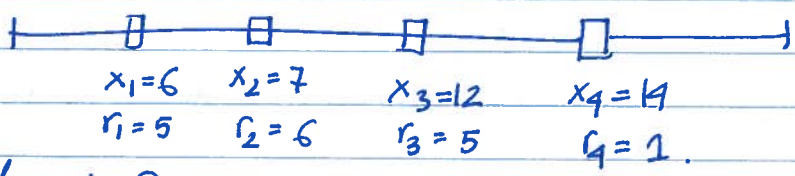 x₁=6 x₂=7 x₃=12 x₄=14
r₁=5 r₂=6 r₃=5 r₄=1.